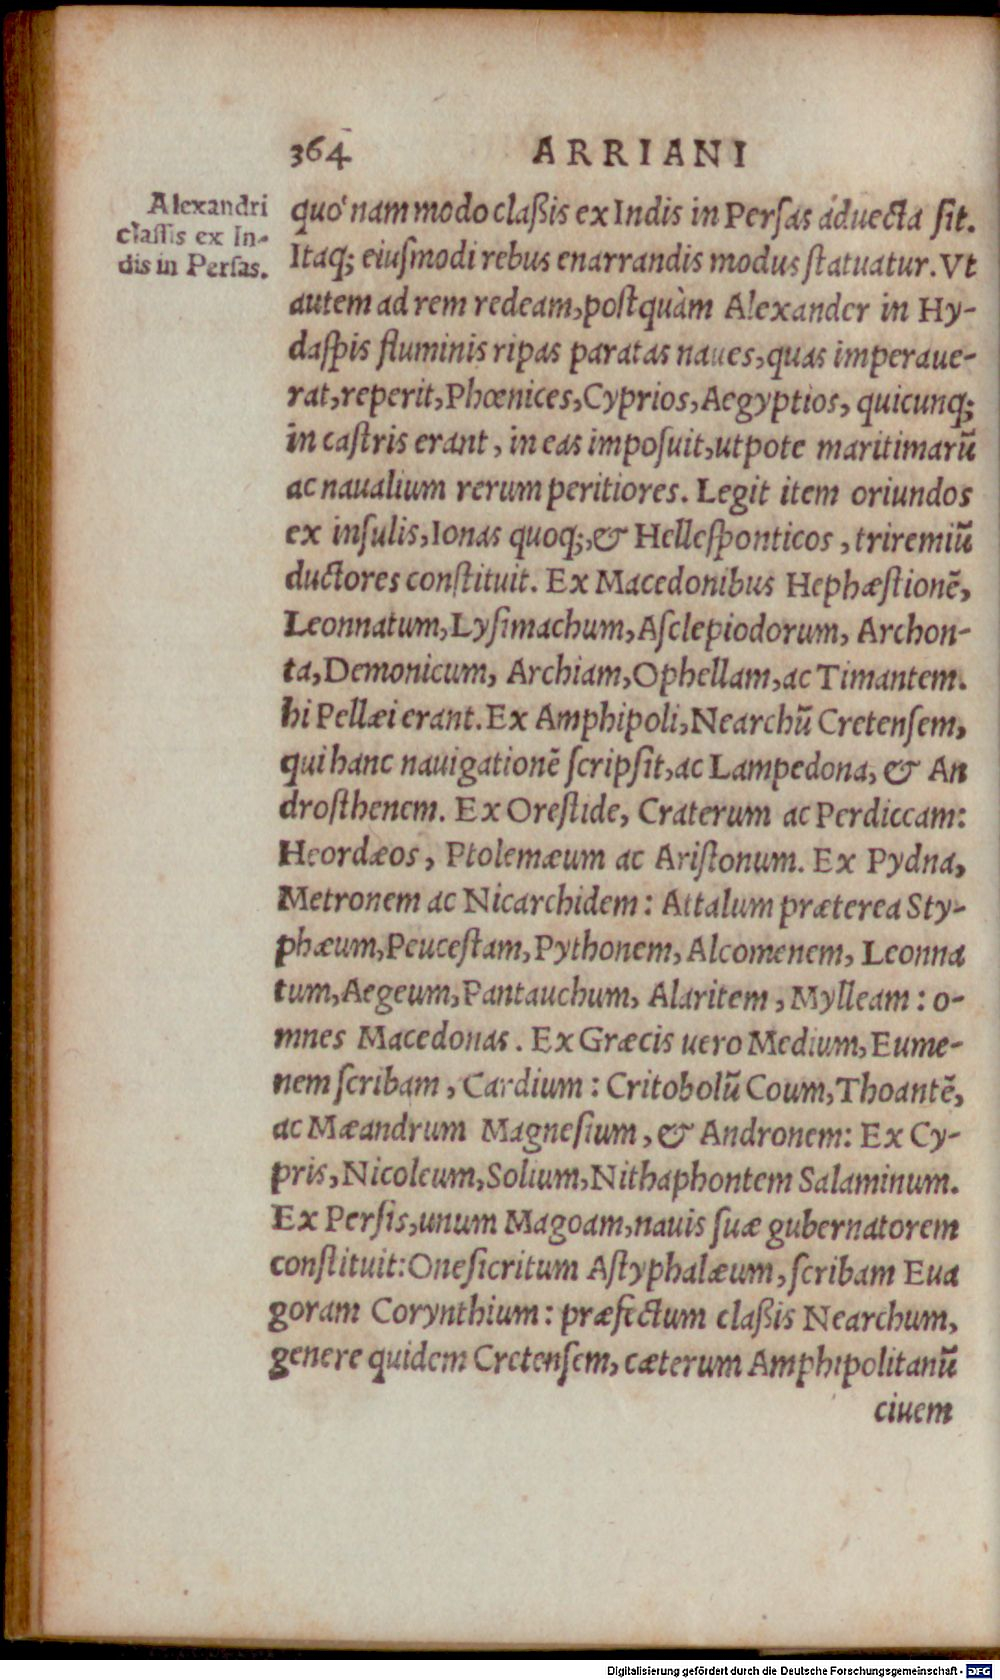 364 ARRIANI
Alexandri
classis ex In-
dis in Persas.
quò nam modo claßis ex Indis in Persas aduecta sit.
Itaq; eiusmodi rebus enarrandis modus statuatur. Vt
autem ad rem redeam, postquàm Alexander in Hy-
daspis fluminis ripas paratas naues, quas imperaue-
rat, reperit, Phœnices, Cyprios, Aegyptios, quicunq;
in castris erant, in eas imposuit, utpote maritimarũ
ac naualium rerum peritiores. Legit item oriundos
ex insulis, Ionas quoq;, & Hellesponticos, triremiũ
ductores constituit. Ex Macedonibus Hephæstionẽ,
Leonnatum, Lysimachum, Asclepiodorum, Archon-
ta, Demonicum, Archiam, Ophellam, ac Timantem.
hi Pellæi erant. Ex Amphipoli, Nearchũ Cretensem,
qui hanc nauigationẽ scripsit, ac Lampedona, & An
drosthenem. Ex Orestide, Craterum ac Perdiccam:
Heordæos, Ptolemæum ac Aristonum. Ex Pydna,
Metronem ac Nicarchidem: Attalum præterea Sty-
phæum, Peucestam, Pythonem, Alcomenem, Leonna
tum, Aegeum, Pantauchum, Alaritem, Mylleam: o-
mnes Macedonas. Ex Græcis uero Medium, Eume-
nem scribam, Cardium: Critobolũ Coum, Thoantẽ,
ac Mæandrum Magnesium, & Andronem: Ex Cy-
pris, Nicoleum, Solium, Nithaphontem Salaminum.
Ex Persis, unum Magoam, nauis suæ gubernatorem
constituit: Onesicritum Astyphalæum, scribam Eua
goram Corynthium: præfectum claßis Nearchum,
genere quidem Cretensem, cæterum Amphipolitanũ
ciuem
Digitalisierung gefördert durch die Deutsche Forschungsgemeinschaft - DFG